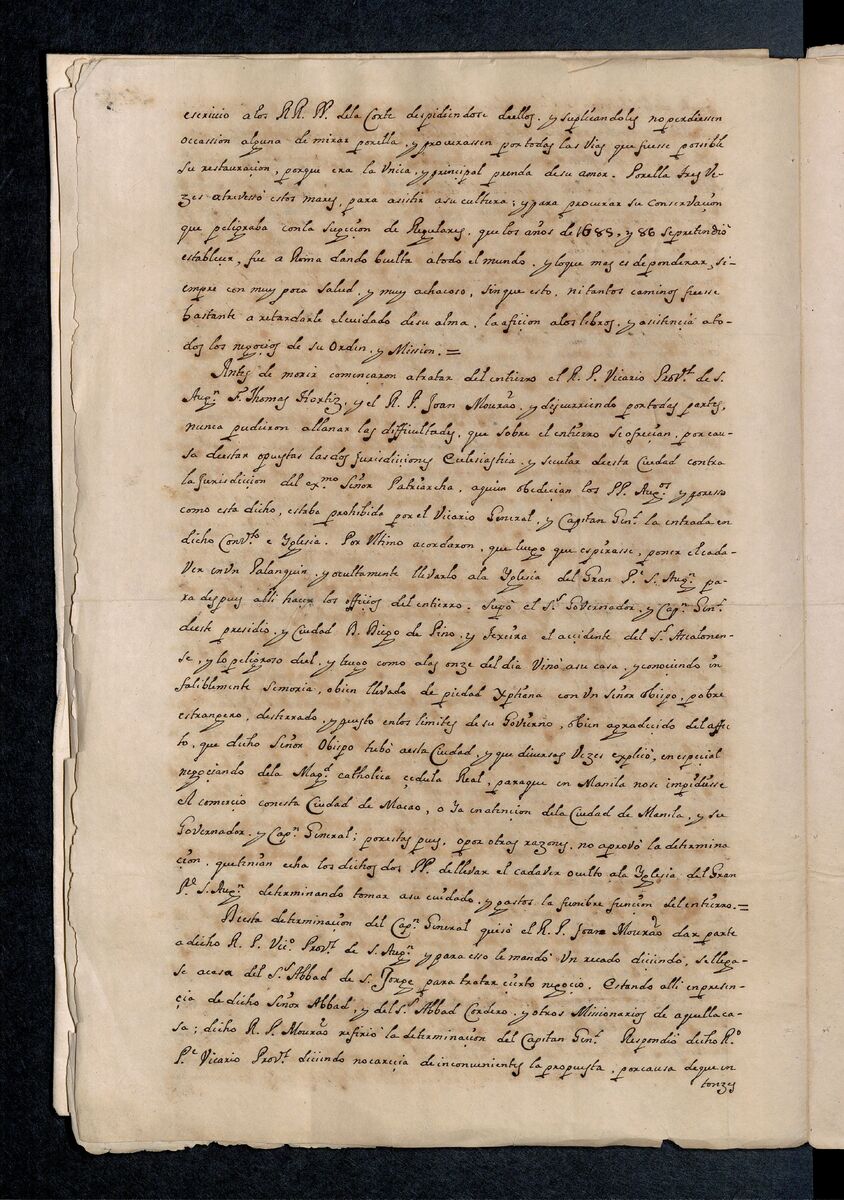 escrivio a los RR. PP. dela Corte despidiendose dellos, y suplicandoles no perdiessen
occassion alguna de mirar porella, y procurassen portodas las vias que fuesse possible
su restauracion, porque era la Vnica, y principal prenda desu amor. Porella tres Ve-
zes atravessò estos mares, para assistir asu cultura; y para procurar su conservaçion
que peligraba conla sugeçion de Regulares, que los años de 1685, y 86 sepretendiò
establecer, fue a Roma dando buelta atodo el mundo, y loque mas es de ponderar, si-
empre con muy poca salud, y muy achacoso, sinque esto, ni tantos caminos fuesse
bastante a retardarle elcuidado desu alma, la afiçion alos libros, y asistençia ato-
dos los negoçios de su Orden, y Mission. =
Antes de morir comencaron atratar del entierro el R. P. Vicario Prov.l de S.
Aug.n F. Thomas Hortiz, y el R. P. Joan Mourão, y discurriendo portodas partes,
nunca pudieron allanar las difficultades, que sobre el entierro se ofreçian, por cau-
sa deestar opuestas lasdos Jurisdiciones Eclesiastica, y secular deesta Ciudad contra
la Jurisdicion del ex.mo Señor Patriarcha, aquien obedecian los PP. Aug.os y poresso
como esta dicho, estaba prohibida por el Vicario General, y Capitan Gen.l la entrada en
dicho Conv.to e Yglesia. Por Vltimo acordaron, que luego que espirasse, poner el cada-
Ver enVn Palanquin, y ocultamente llevarlo ala Yglesia del Gran P.e S. Aug.n pa-
ra despues alli hacer los officios del entierro. Supo el S.r Governador, y Cap.n Gen.l
deeste presidio, y Ciudad D. Diego de Pino, y Texeira el accidente del S.r Ascalonen-
se, y lo peligroso del, y luego como alas onze del dia Vino asu casa, y conociendo in
faliblemente semoria, obien llevado de piedad Xptiana con Vn Señor Obispo, pobre
estrangero, desterrado, y puesto enlos limites de su Goviérno, obien agradecido del affe-
to, que dicho Señor Obispo tubò aesta Ciudad, y que diversas Vezes explicò, en especial
negociando dela Mag.d catholica çedula Real, paraque en Manila nose impidiesse
el comercio conesta Ciudad de Macao, o ya enatencion dela Ciudad de Manila, y su
Governador, y Cap.n General; porestas pues, opor otras razones, no aprovò la determina
çion, quetenian echa los dichos dos PP. dellevar el cadaver oculto ala Yglesia del Gran
P.e S. Aug.n determinando tomar asu cuidado, y gastos la funebre funcion del entierro. =
Desta determinacion del Cap.n General quisò el R. P. Joan Mourão dar parte
a dicho R. P. Vic.o Prov.l de S. Aug.n y para esso le mandò Vn recado diciendo, sellega-
se acasa del S.r Abbad de S. Jorge para tratar çierto negoçio. Estando alli enpresen-
çia de dicho Señor Abbad, y del S.r Abbad Cordero, y otros Missionarios de aquella ca-
sa; dicho R. P. Mourão refirio la determinaçion del Capitan Gen.l Respondiò dicho R.o
P.e Vicario Prov.l diciendo nocarecia de inconvenientes la propuesta, por causa deque en
tonzes